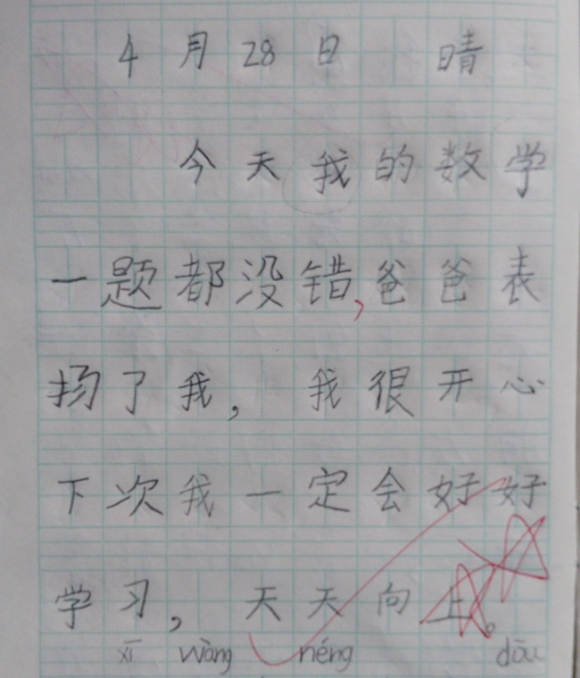 4月28日 晴
今天我的数学
一题都没错,爸爸表
扬了我, 我很开心
下次我一定会好好
学习, 天天向上。
xī wàng néng dōu